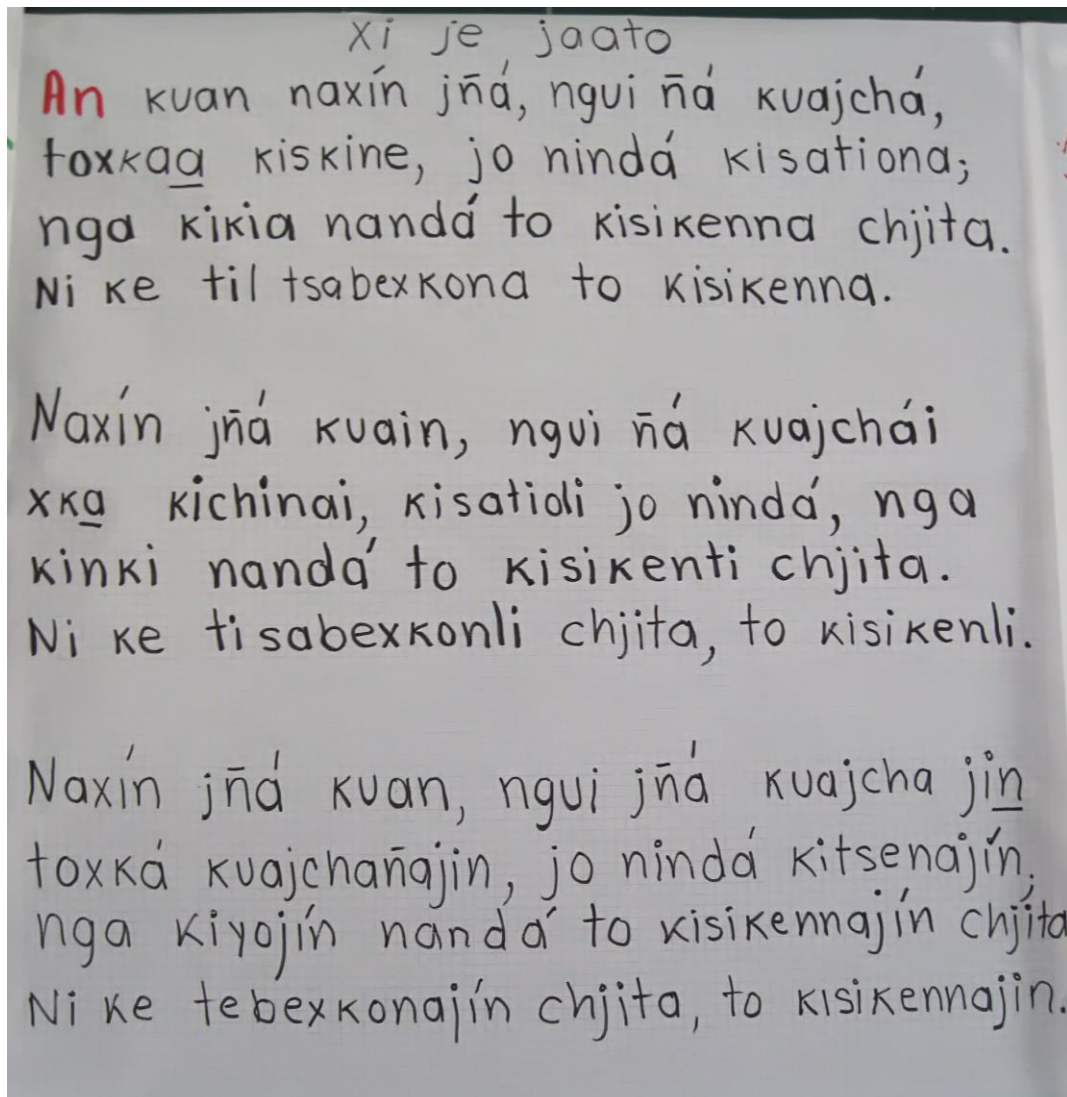 xi je jaato
An kuan naxín jñá, ngui ñá kuajchá,
toxkaa̲ kiskine, jo nindá kisationa;
nga kikia nandá to kisikenna chjita.
Ni ke til tsabexkona to kisikenna.
Naxín jñá kuain, ngui ñá kuajchái
xka̲ kichinai, kisatioli jo nindá, nga
kinki nandá to kisikenti chjita.
Ni ke ti sabexkonli chjita, to kisikenli.
Naxín jñá kuan, ngui jñá kuajcha jin̲
toxká kuajchañajin, jo nindá kitsenajín,
nga kiyojín nandá to kisikennajín chjita
Ni ke tebexkonajín chjita, to kisikennajin.